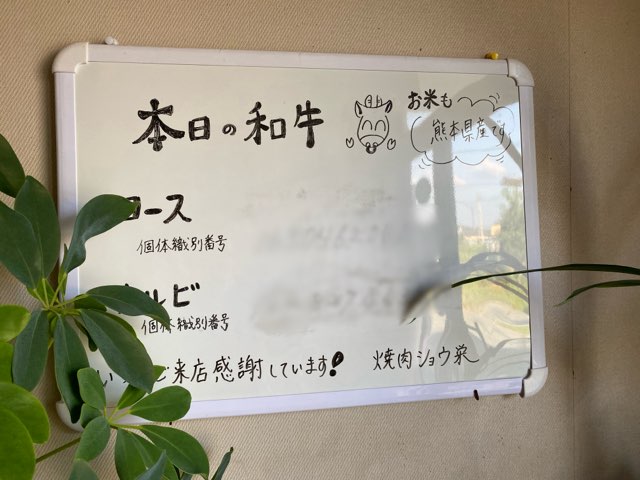 本日の和牛
お米も
熊本県産です
ロース
個体識別番号
カルビ
個体識別番号
ご来店感謝しています!
焼肉ショウ栄